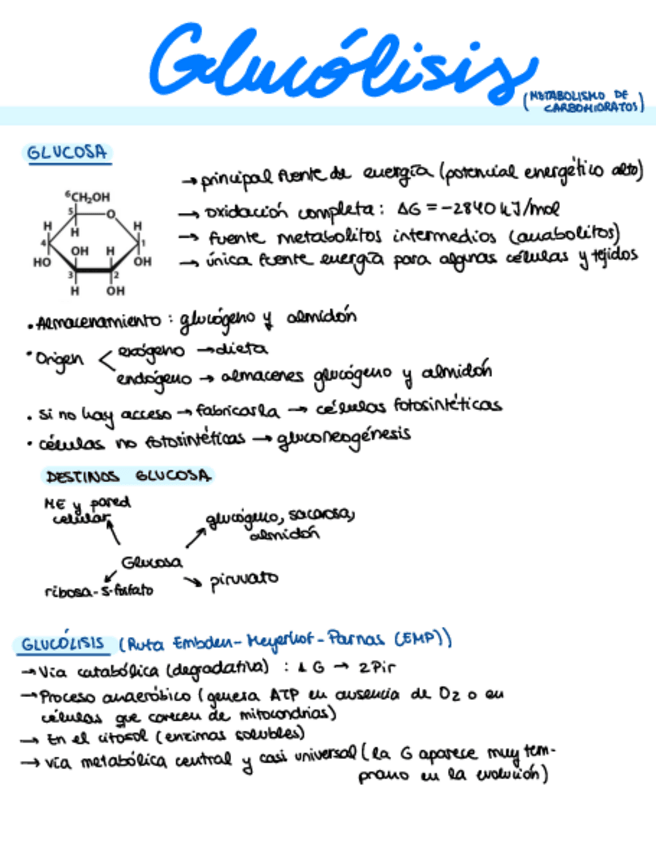 Glucólisis
(METABOLISMO DE
CARBOHIDRATOS)
GLUCOSA
→ principal fuente de energía (potencial energético alto)
→ oxidación completa: ΔG = -2840 kJ/mol
→ fuente metabolitos intermedios (anabolitos)
→ única fuente energía para algunas células y tejidos
6CH2OH
5 O
H H H
4 OH H 1
HO 3 2 OH
H OH
• Almacenamiento: glucógeno y almidón
• Origen < exógeno → dieta
endógeno → almacenes glucógeno y almidón
• si no hay acceso → fabricarla → células fotosintéticas
• células no fotosintéticas → gluconeogénesis
DESTINOS GLUCOSA
ME y pared
celular
glucógeno, sacarosa,
almidón
Glucosa
ribosa-5-fosfato
piruvato
GLUCÓLISIS (Ruta Embden-Meyerhof-Parnas (EMP))
→ Vía catabólica (degradativa) : 1 G → 2 Pir
→ Proceso anaeróbico (genera ATP en ausencia de O2 o en
células que carecen de mitocondrias)
→ En el citosol (enzimas solubles)
→ vía metabólica central y casi universal (la G aparece muy tem-
prano en la evolución)